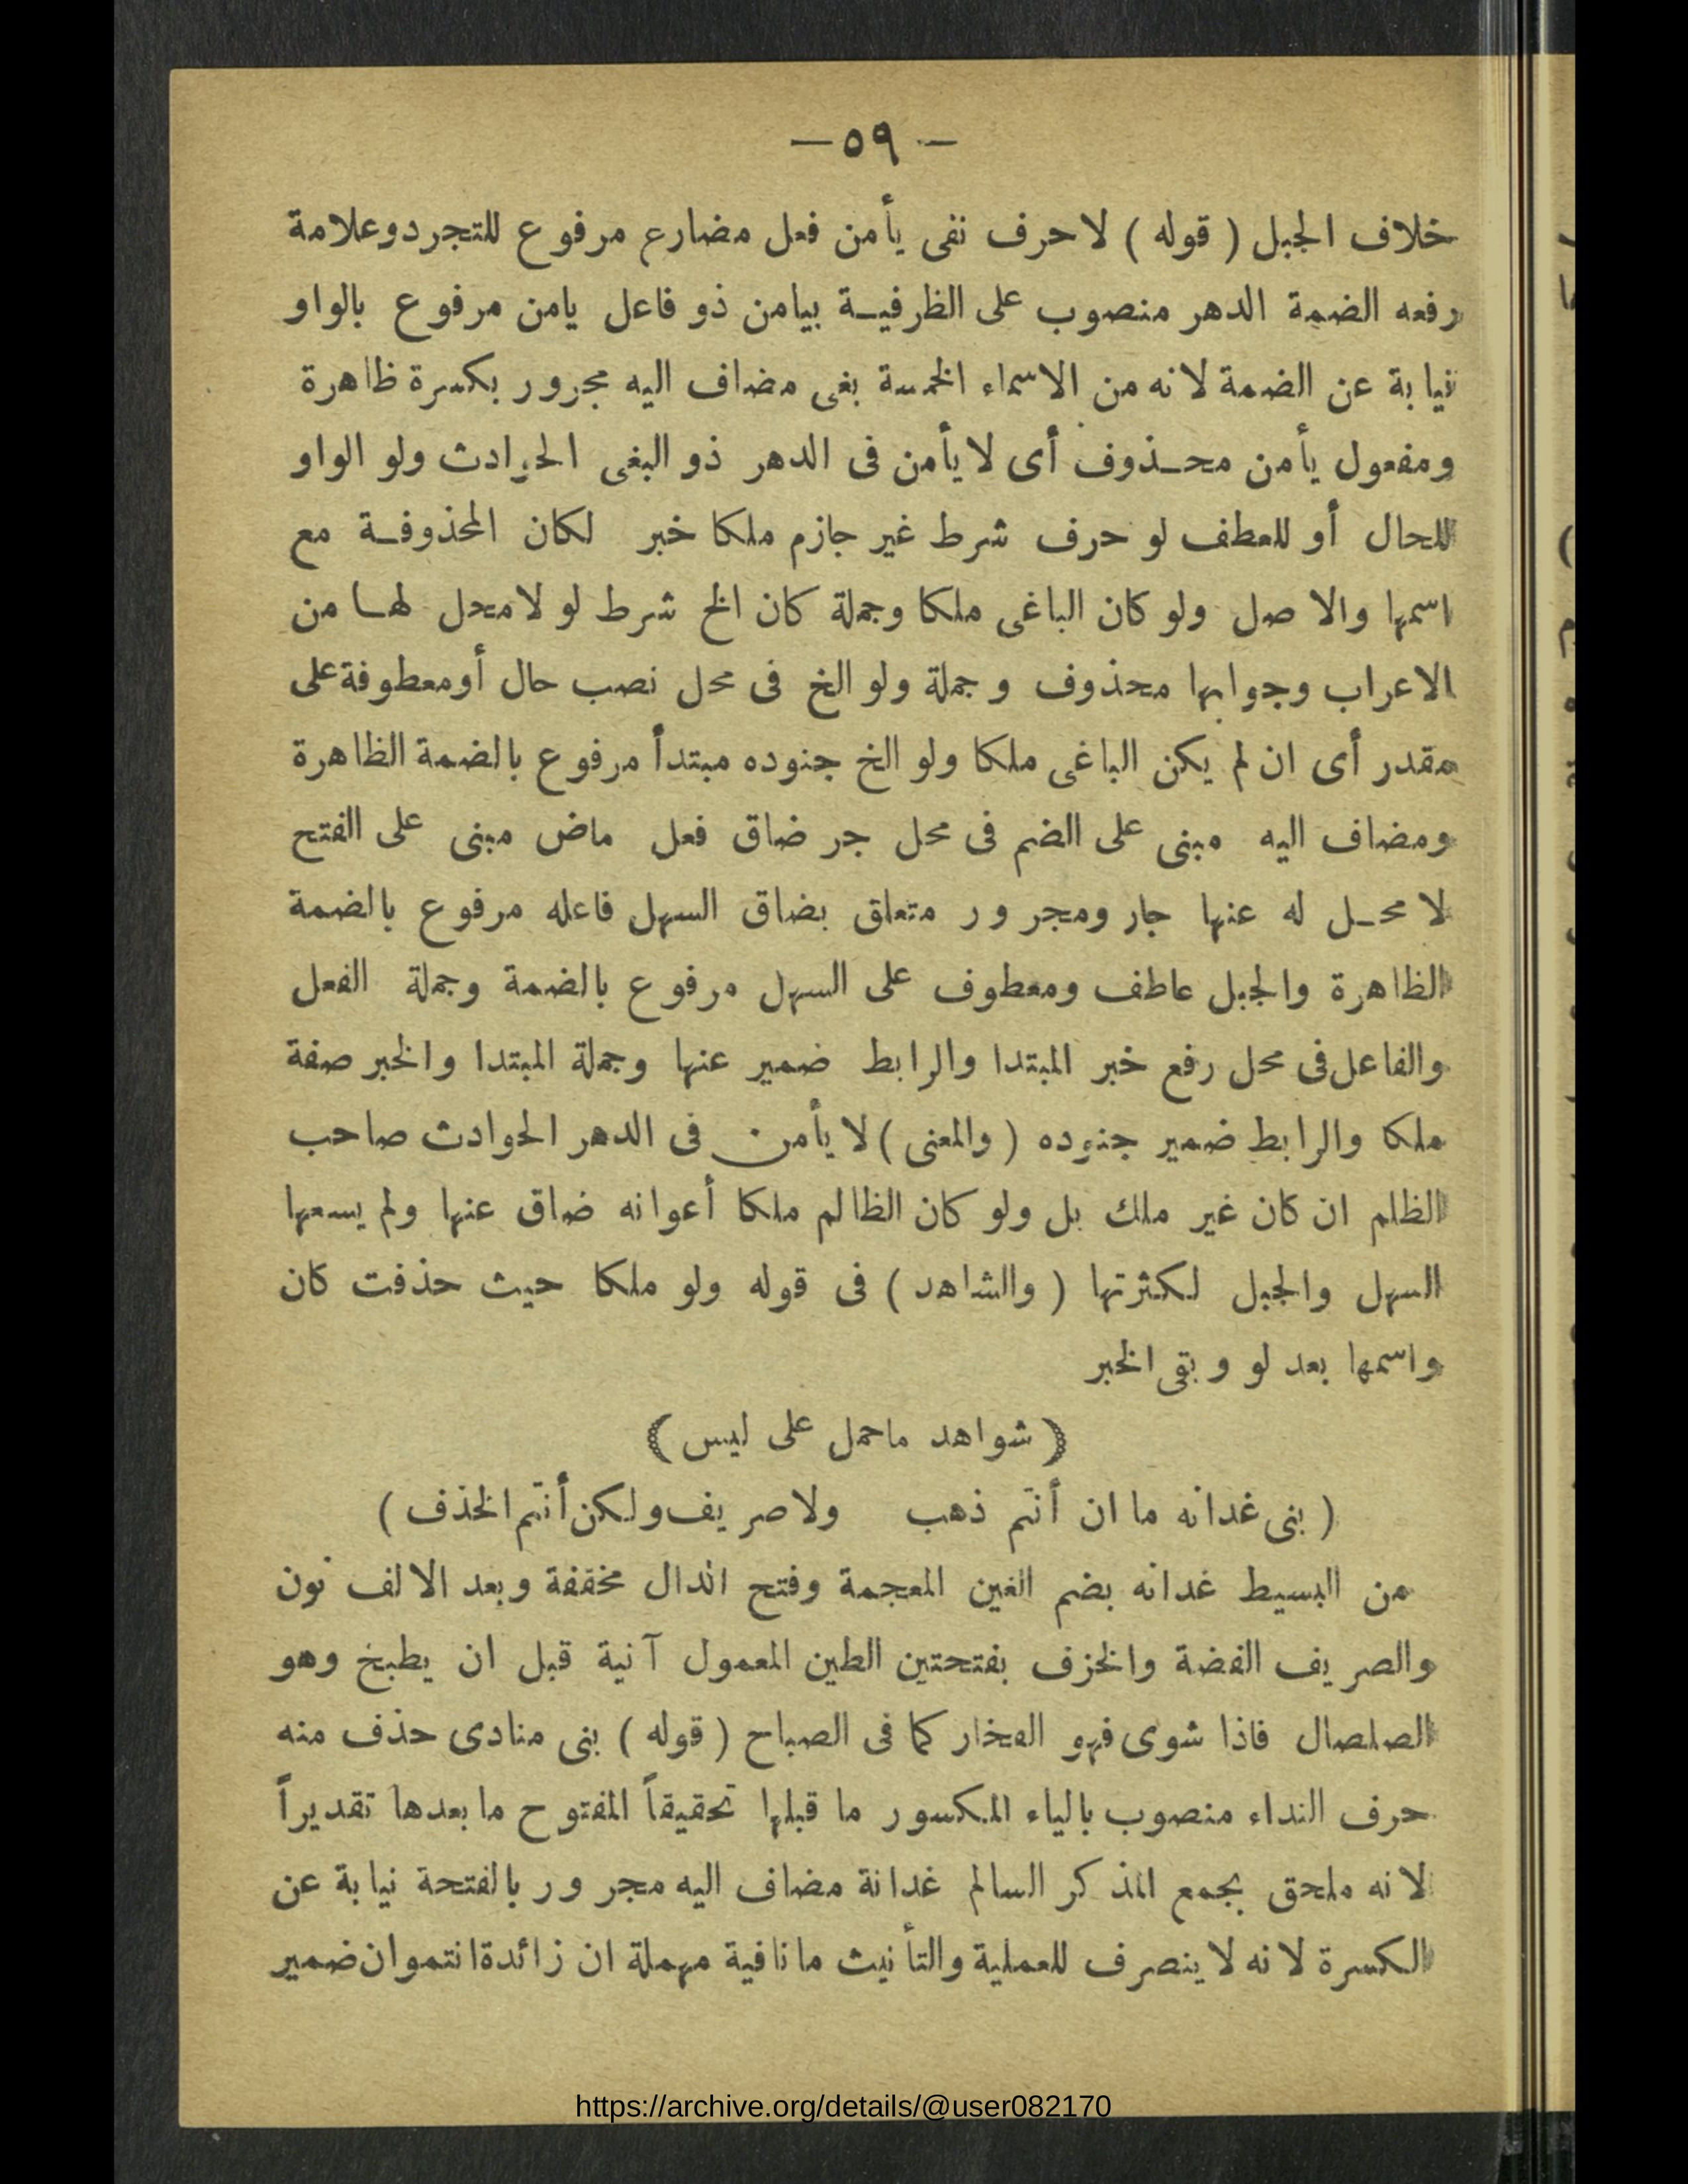 — ٥٩ —
خلاف الجبل ( قوله ) لا حرف نفى يأمن فعل مضارع مرفوع للتجرد وعلامة
رفعه الضمة الدهر منصوب على الظرفيــة بيامن ذو فاعل يامن مرفوع بالواو
نيابة عن الضمة لانه من الاسماء الخمسة بغى مضاف اليه مجرور بكسرة ظاهرة
ومفعول يأمن محــذوف أى لا يأمن فى الدهر ذو البغى الحوادث ولو الواو
للحال أو للعطف لو حرف شرط غير جازم ملكا خبر لكان المحذوفــة مع
اسمها والاصل ولو كان الباغى ملكا وجملة كان الخ شرط لو لا محل لهــا من
الاعراب وجوابها محذوف وجملة ولو الخ فى محل نصب حال أو معطوفة على
مقدر أى ان لم يكن الباغى ملكا ولو الخ جنوده مبتدأ مرفوع بالضمة الظاهرة
ومضاف اليه مبنى على الضم فى محل جر ضاق فعل ماض مبنى على الفتح
لا محــل له عنها جار ومجرور متعلق بضاق السهل فاعله مرفوع بالضمة
الظاهرة والجبل عاطف ومعطوف على السهل مرفوع بالضمة وجملة الفعل
والفاعل فى محل رفع خبر المبتدا والرابط ضمير عنها وجملة المبتدا والخبر صفة
ملكا والرابط ضمير جنوده ( والمعنى ) لا يأمن فى الدهر الحوادث صاحب
الظلم ان كان غير ملك بل ولو كان الظالم ملكا أعوانه ضاق عنها ولم يسعها
السهل والجبل لكثرتها ( والشاهد ) فى قوله ولو ملكا حيث حذفت كان
واسمها بعد لو وبقى الخبر
( شواهد ماحمل على ليس )
( بنى غدانه ما ان أنتم ذهب ولا صريف ولكن أنتم الخذف )
من البسيط غدانه بضم الغين المعجمة وفتح الدال مخففة وبعد الالف نون
والصريف الفضة والخزف بفتحتين الطين المعمول آنية قبل ان يطبخ وهو
الصلصال فاذا شوى فهو الفخار كما فى الصباح ( قوله ) بنى منادى حذف منه
حرف النداء منصوب بالياء المكسور ما قبلها تحقيقاً المفتوح ما بعدها تقديراً
لانه ملحق بجمع المذكر السالم غدانة مضاف اليه مجرور بالفتحة نيابة عن
الكسرة لانه لا ينصرف للعملية والتأنيث ما نافية مهملة ان زائدة انتموان ضمير
https://archive.org/details/@user082170